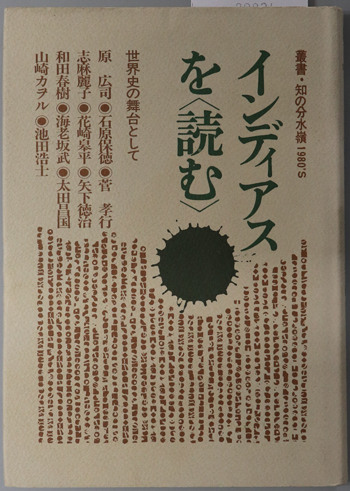 叢書・知の分水嶺1980'S
インディアス
を〈読む〉
世界史の舞台として
原 広司●石原保徳●菅 孝行
志麻麗子●花崎皋平●矢下徳治
和田春樹●海老坂武●太田昌国
山崎カヲル●池田浩士